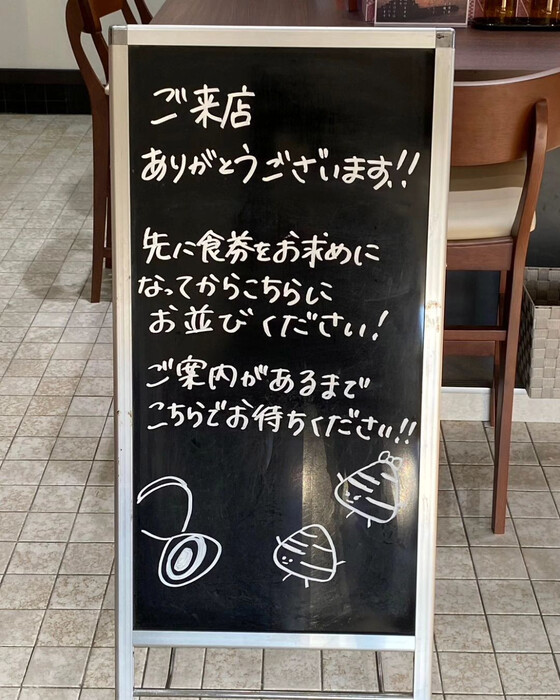 ご来店
ありがとうございます!!
先に食券をお求めに
なってからこちらに
お並びください!
ご案内があるまで
こちらでお待ちください!!